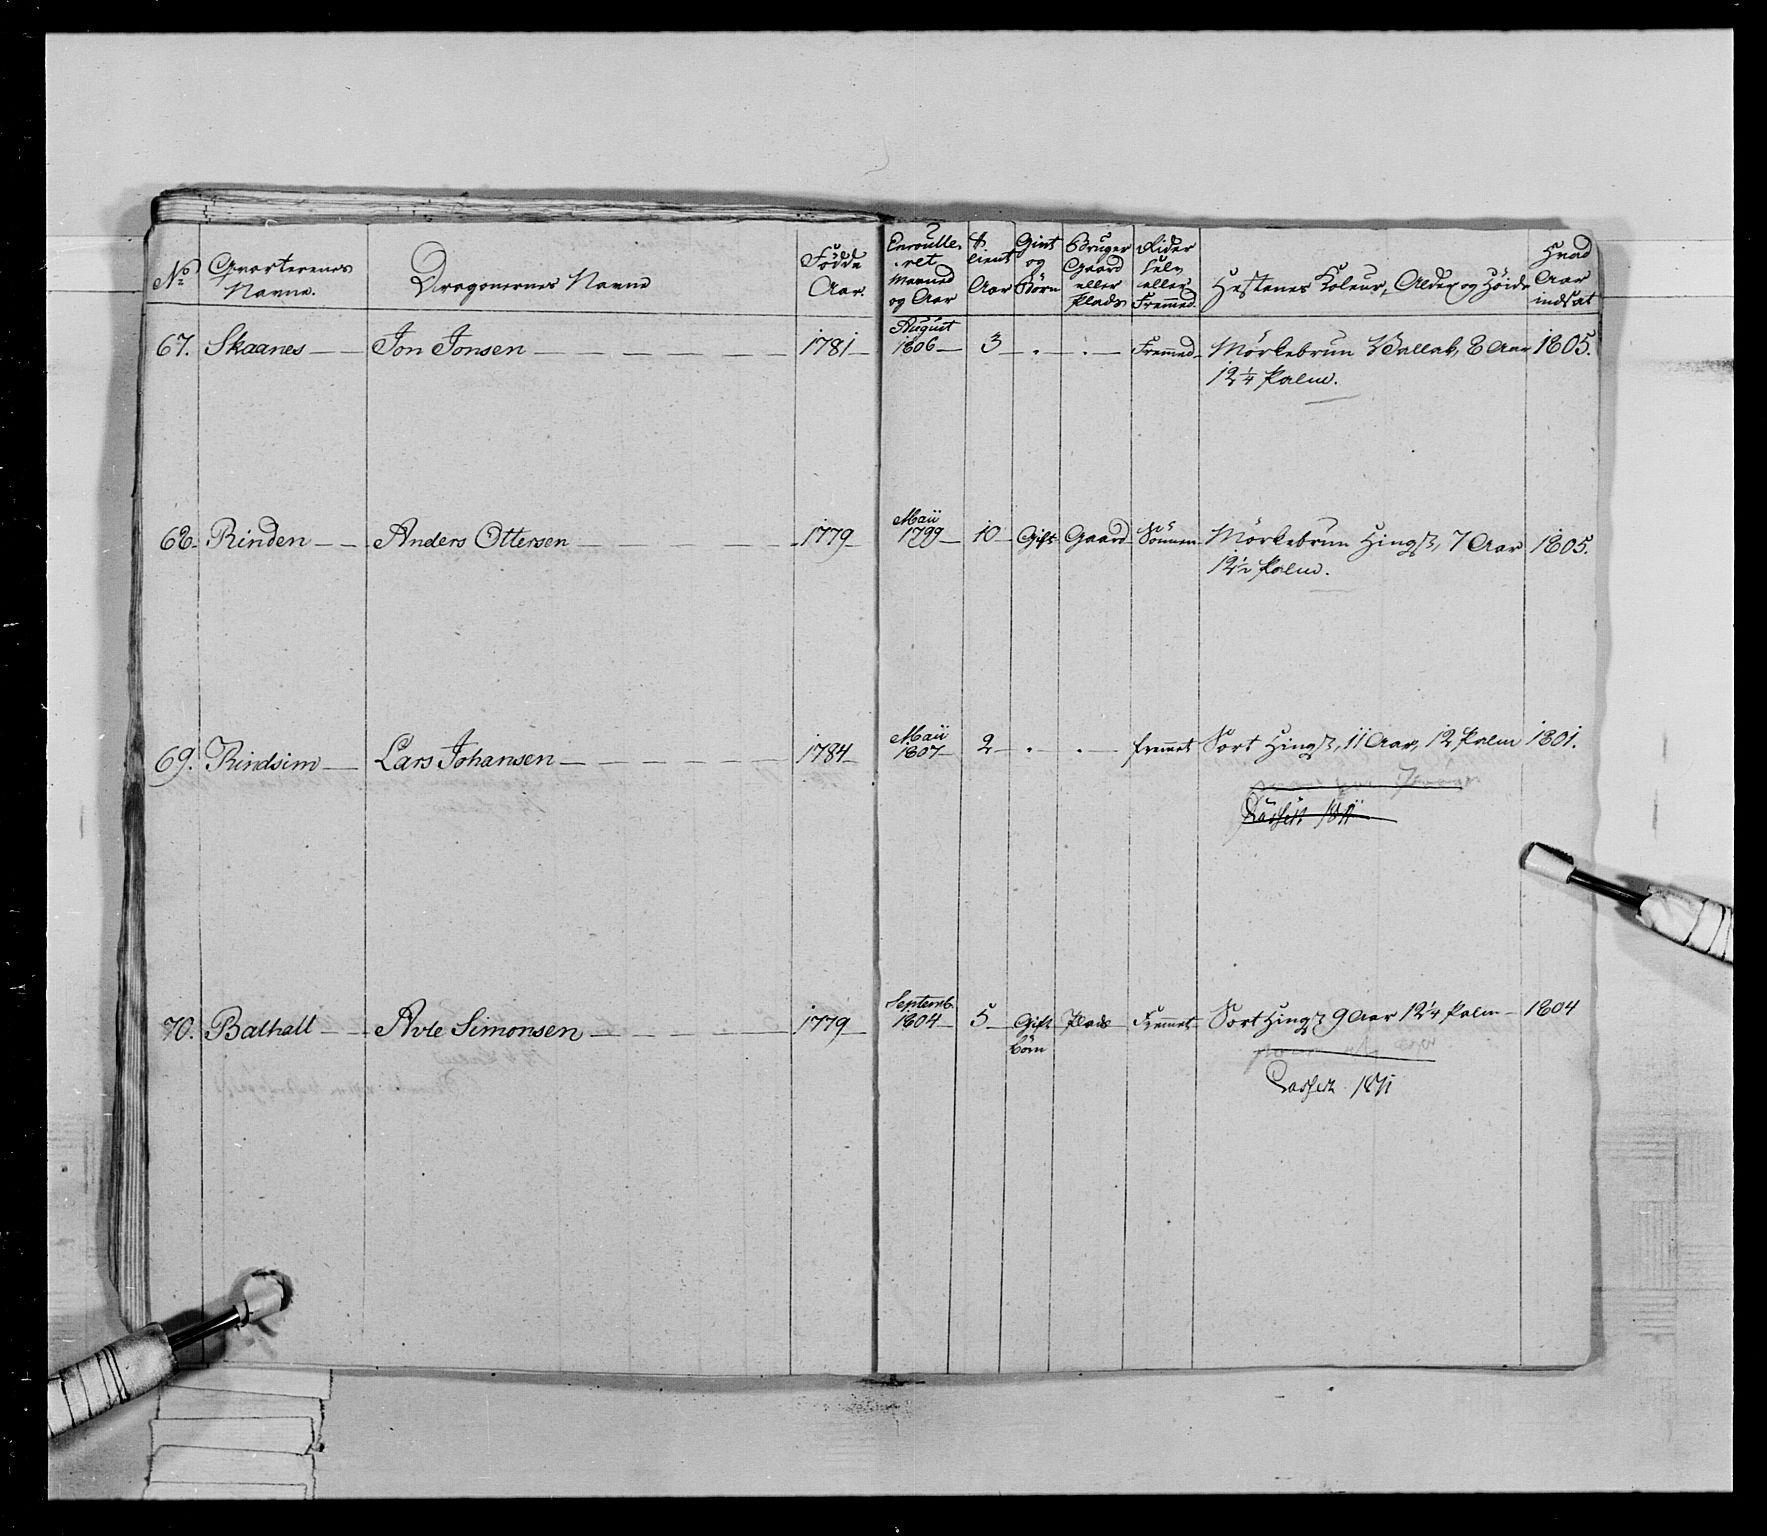 No
Qvarterenes
Navne.
Dragonernes Navne
Födde
Aar.
Enroulle-
ret
Maaned
og Aar
tient
Aar
Gift
og
Börn
Bruger
Gaard
eller
Plads
Rider
selv
eller
Fremmed.
Hestenes Koleur, Alder og Höide
Hvad
Aar
indsat
67. Skaanes — Jon Jonsen — 1781 — August 1806 — 3 — . — . — Fremmed — Mörkebrun Vallak, 8 Aar 1805.
12 1/4 Palm.
68. Rinden — Anders Ottersen — 1779 — Maii 1799 — 10 — Gift Gaard — Sönnen — Mörkebrun Hingst, 7 Aar 1805.
12 1/2 Palm.
69. Rindsim — Lars Johansen — 1784 — Maii 1807 — 2 — . — . — fremmet Sort Hingst, 11 Aar, 12 Palm 1801.
Casseret 1811
70. Balhall — Avle Simonsen — 1779 — Septemb. 1804 — 5 — Gift Plads Fremmet — Sort Hingst 9 Aar 12 1/4 Palm — 1804
börn
Casseret 1811